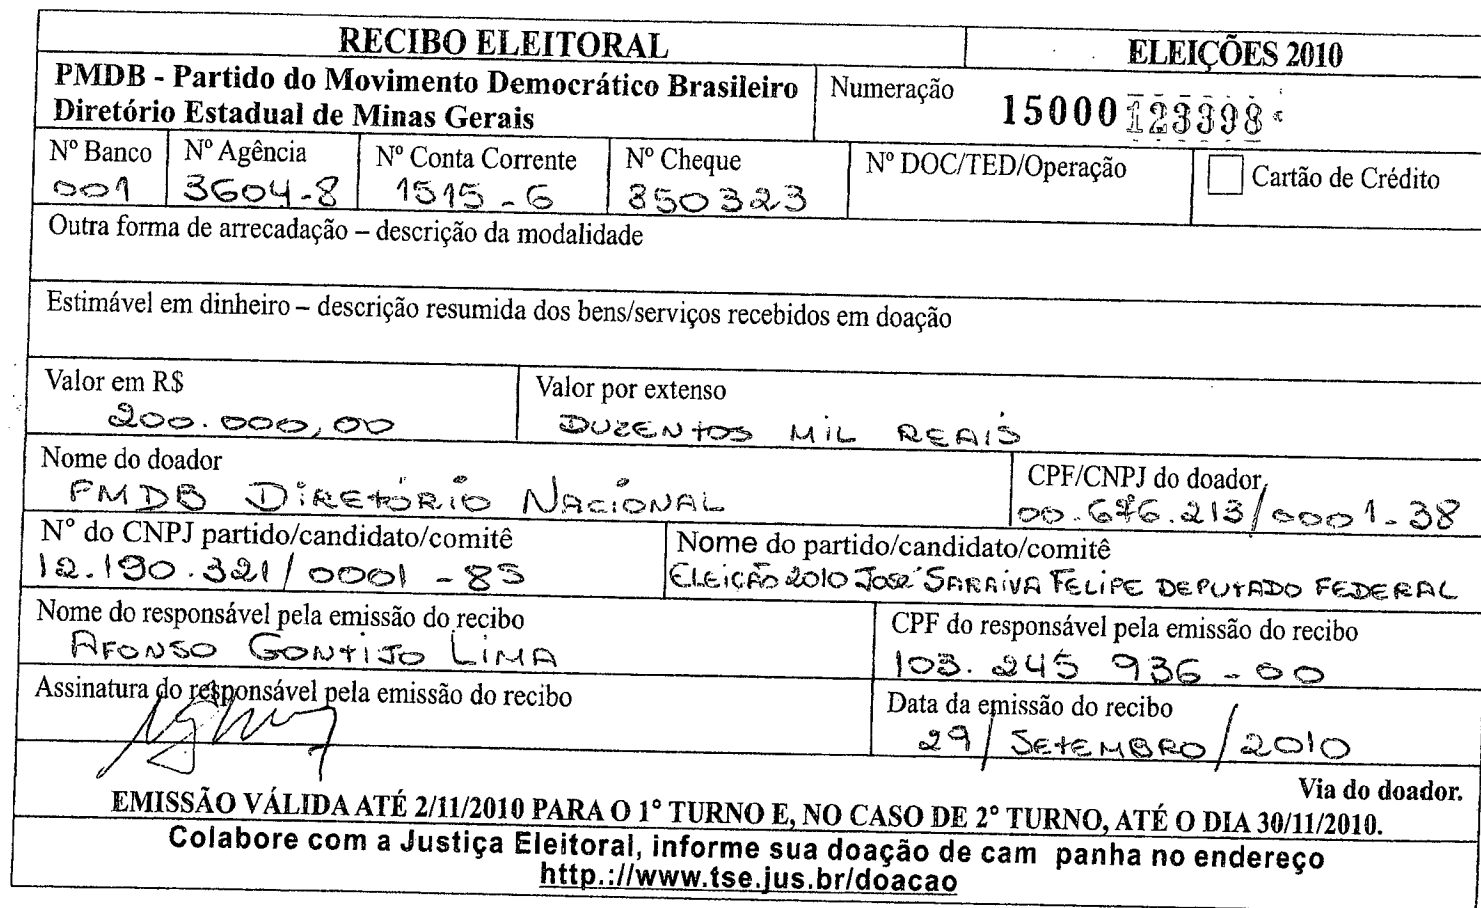 RECIBO ELEITORAL ELEIÇÕES 2010
PMDB - Partido do Movimento Democrático Brasileiro
Diretório Estadual de Minas Gerais
Numeração 15000 123398
Nº Banco Nº Agência Nº Conta Corrente Nº Cheque Nº DOC/TED/Operação Cartão de Crédito
001 3604-8 1515-6 850323
Outra forma de arrecadação – descrição da modalidade
Estimável em dinheiro – descrição resumida dos bens/serviços recebidos em doação
Valor em R$ Valor por extenso
200.000,00 DUZENTOS MIL REAIS
Nome do doador CPF/CNPJ do doador
PMDB DIRETÓRIO NACIONAL 00.676.213/0001-38
N° do CNPJ partido/candidato/comitê Nome do partido/candidato/comitê
12.190.321/0001-85 ELEIÇÃO 2010 JOSÉ SARAIVA FELIPE DEPUTADO FEDERAL
Nome do responsável pela emissão do recibo CPF do responsável pela emissão do recibo
AFONSO GONTIJO LIMA 103.245 936-00
Assinatura do responsável pela emissão do recibo Data da emissão do recibo
29/SETEMBRO/2010
Via do doador.
EMISSÃO VÁLIDA ATÉ 2/11/2010 PARA O 1° TURNO E, NO CASO DE 2° TURNO, ATÉ O DIA 30/11/2010.
Colabore com a Justiça Eleitoral, informe sua doação de cam panha no endereço
http.://www.tse.jus.br/doacao